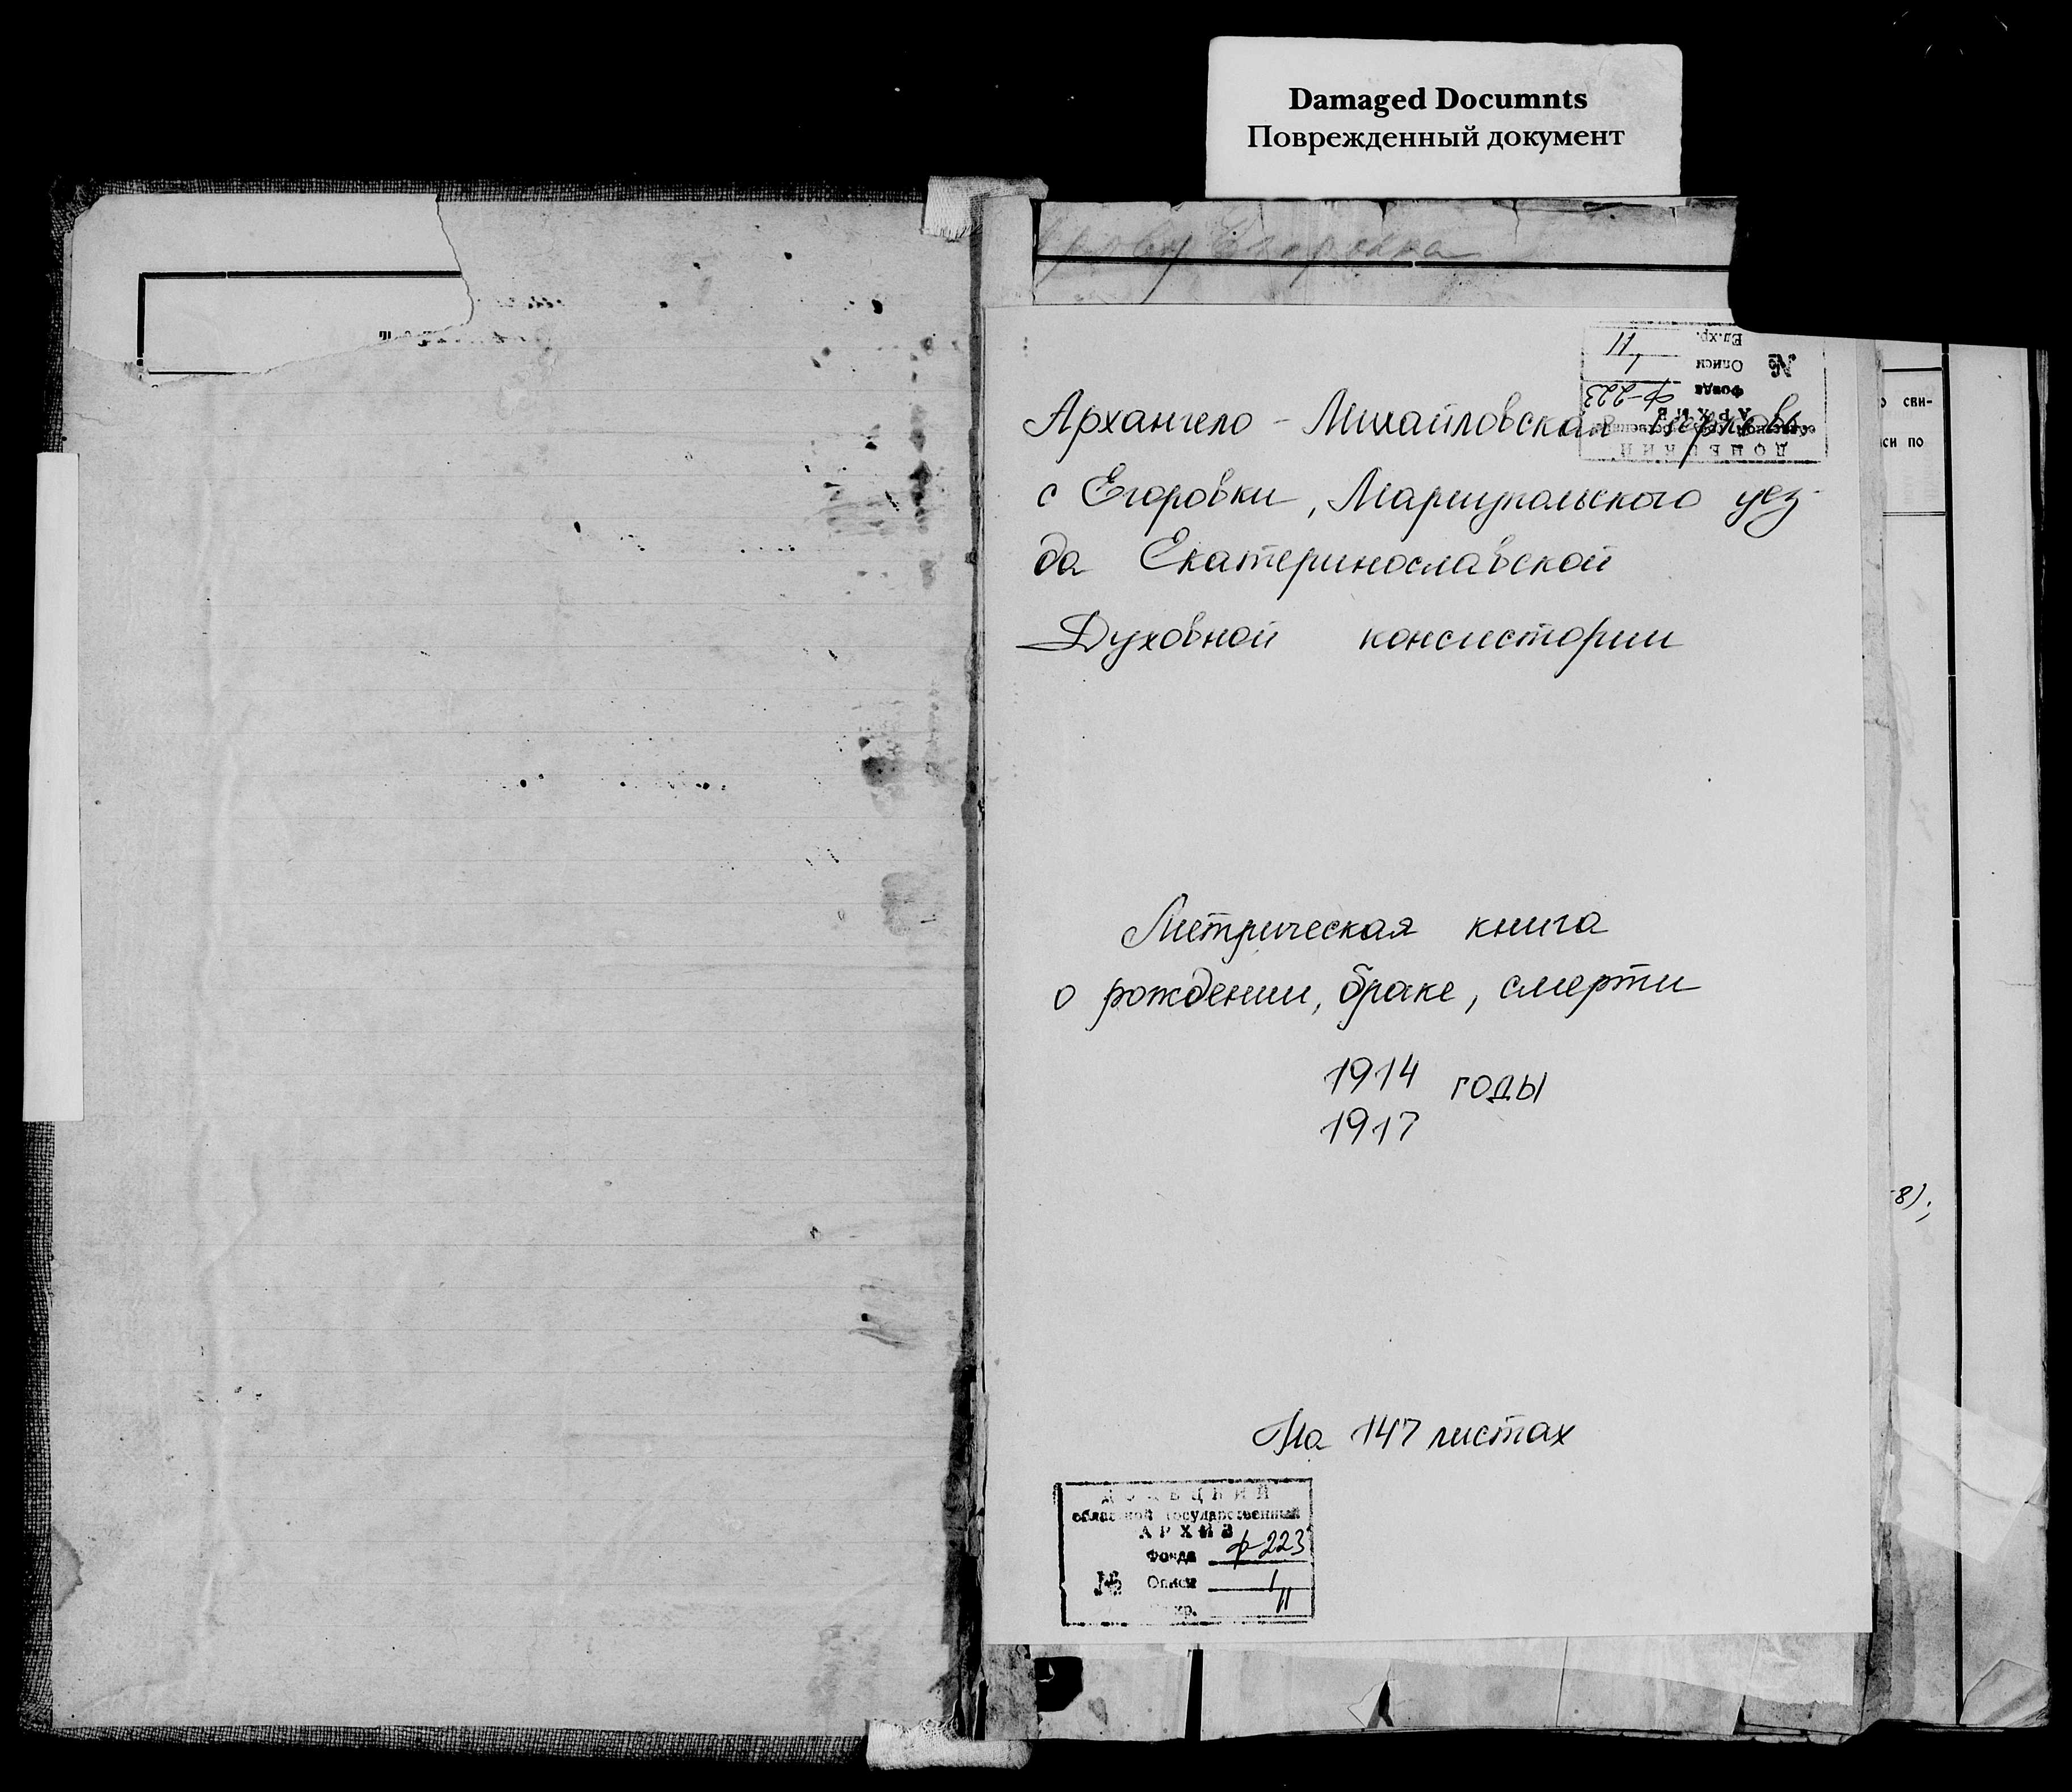 Damaged Documnts
Поврежденный документ
Егоровка
Архангело - Михайловская церковь
с Егоровки, Мариупольского уез-
да Екатеринославской
Духовной консистории
Метрическая книга
о рождении, браке, смерти
1914 годы
1917
На 147 листах
ДОНЕЦКИЙ
областной государственный
АРХИВ
Фонда ф-223
№ Описи 1
хр. 11
ДОНЕЦКИЙ
АРХИВ
Фонда Ф-223
№ Описи 1
Ед.хр. 11
сви-
си по
8);